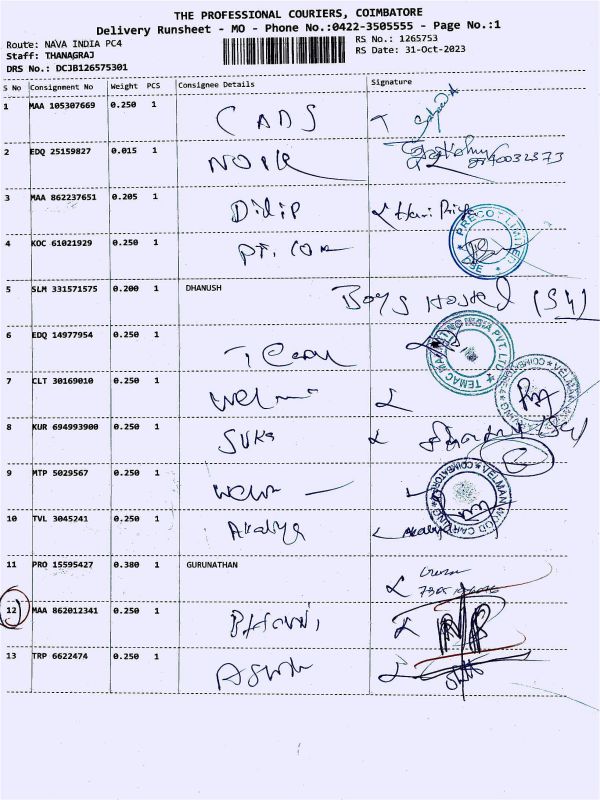 THE PROFESSIONAL COURIERS, COIMBATORE
Delivery Runsheet - MO - Phone No.:0422-3505555 - Page No.:1
Route: NAVA INDIA PC4
Staff: THANAGRAJ
DRS No.: DCJB126575301
RS No.: 1265753
RS Date: 31-Oct-2023
S No Consignment No Weight PCS Consignee Details Signature
1 MAA 105307669 0.250 1 CADS
2 EDQ 25159827 0.015 1
3 MAA 862237651 0.205 1 Dilip Hari Priya
4 KOC 61021929 0.250 1 PRECOT LIMITED
5 SLM 331571575 0.200 1 DHANUSH Boys Hostel
6 EDQ 14977954 0.250 1 TEMAC INDIA PVT. LTD
7 CLT 30169010 0.250 1
8 KUR 694993900 0.250 1
9 MTP 5029567 0.250 1 COIMBATORE
10 TVL 3045241 0.250 1 Akaliya
11 PRO 15595427 0.380 1 GURUNATHAN
12 MAA 862012341 0.250 1
13 TRP 6622474 0.250 1